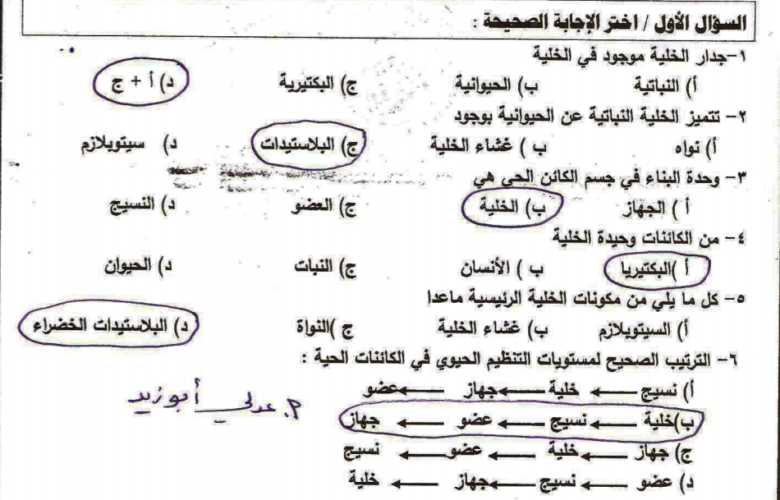 السؤال الأول / اختر الإجابة الصحيحة :
١-جدار الخلية موجود في الخلية
أ) النباتية ب) الحيوانية ج) البكتيرية د) أ + ج
٢- تتميز الخلية النباتية عن الحيوانية بوجود
أ) نواه ب ) غشاء الخلية ج) البلاستيدات د) سيتوبلازم
٣- وحدة البناء في جسم الكائن الحي هي
أ ) الجهاز ب) الخلية ج) العضو د) النسيج
٤- من الكائنات وحيدة الخلية
أ )البكتيريا ب ) الأنسان ج) النبات د) الحيوان
٥- كل ما يلي من مكونات الخلية الرئيسية ماعدا
أ) السيتوبلازم ب) غشاء الخلية ج )النواة د) البلاستيدات الخضراء
٦- الترتيب الصحيح لمستويات التنظيم الحيوي في الكائنات الحية :
أ) نسيج ← خلية ← جهاز ← عضو
م. عدلي أبو زيد
ب)خلية ← نسيج ← عضو ← جهاز
ج) جهاز ← خلية ← عضو ← نسيج
د) عضو ← نسيج ← جهاز ← خلية